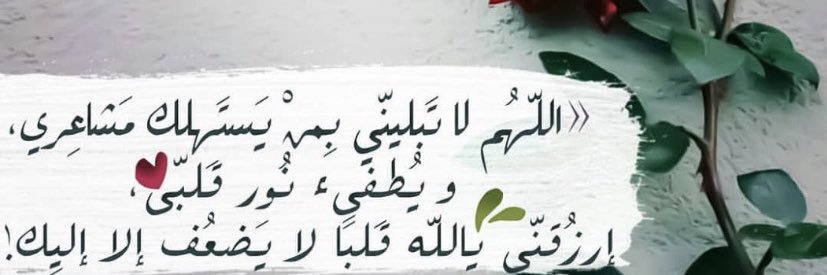 «اللّهُم لا تَبلينّي بِمنْ يَستَهلك مَشاعِري،
و يُطفىء نُور قَلبّي،
إرزُقنّي ياللّه قَلبًا لا يَضعُف إلا إليك!